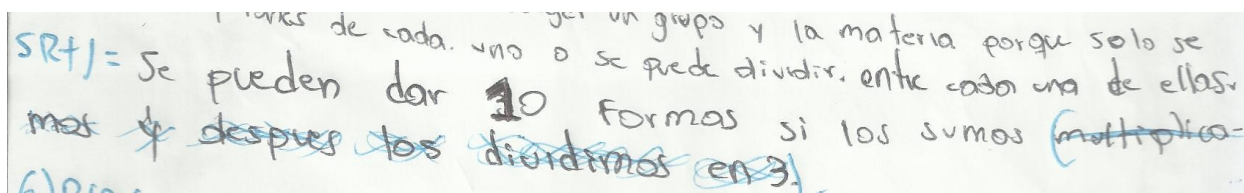 de cada uno o se puede dividir. entre cada una de ellas.
un grupo y la materia porque solo se
5Rt)= Se pueden dar 10 formas si los sumos (multiplica-
mos y despues los dividimos en 3.)